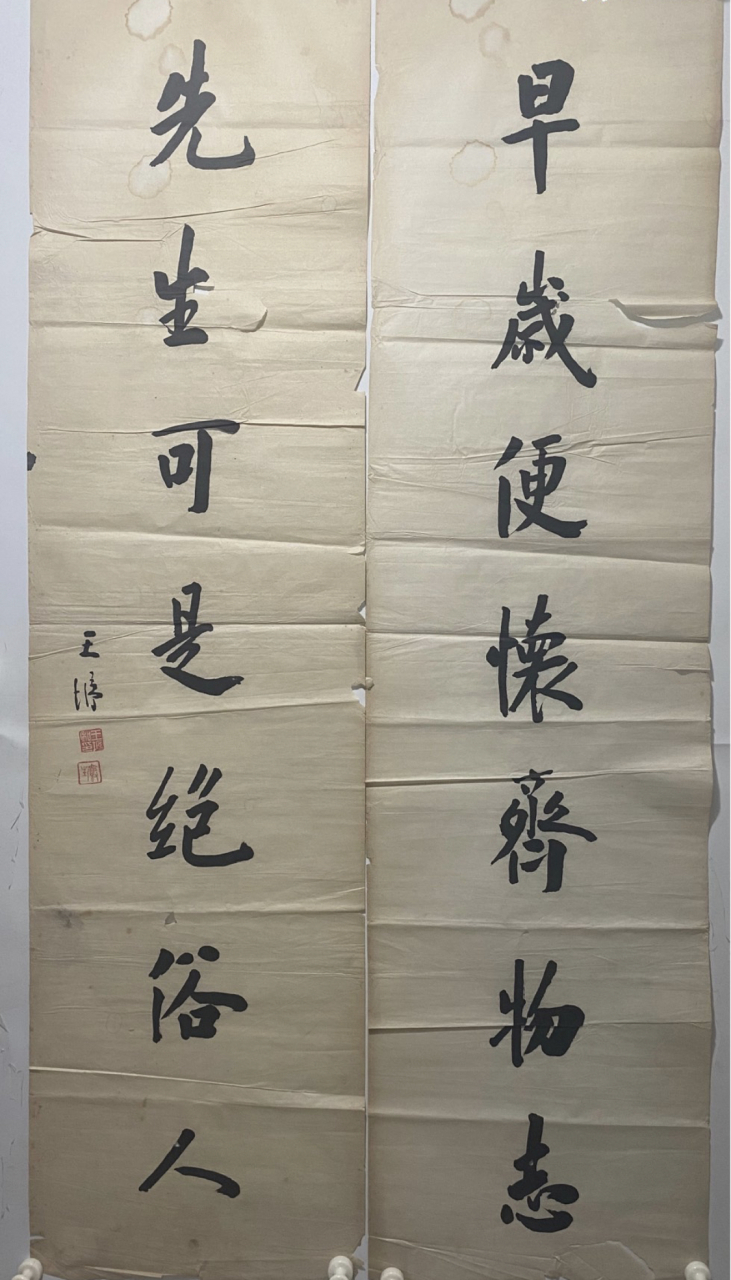 早歲便懷齊物志
先生可是絕俗人
王